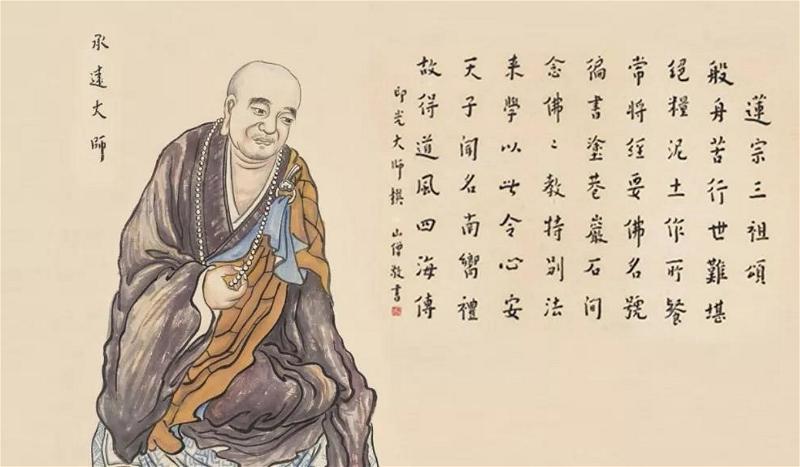 蓮宗三祖頌
般舟苦行世難堪
絕糧泥土作所餐
常將經要佛名號
徧書塗巷巖石間
念佛〻教特別法
来學以此令心安
天子聞名南嚮禮
故得道風四海傳
印光大師撰 山僧敬書
承遠大師